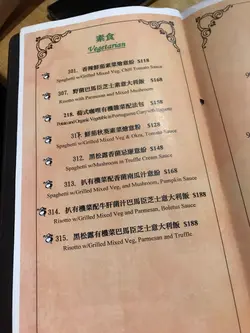 素食
Vegetarian
301. 香辣鮮茄素菜燴意粉 $118
Spaghetti w/Grilled Mixed Veg, Chili Tomato Sauce
307. 野菌巴馬臣芝士意大利飯 $168
Risotto with Parmesan and Mixed Mushroom
218. 葡式咖喱有機雜菜配法包 $150
Potato and Organic Vegetable in Portuguese Curry with Baguette
311. 鮮茄秋葵素菜燴意粉 $128
Spaghetti w/Grilled Mixed Veg & Okra, Tomato Sauce
312. 黑松露香菌忌廉意粉 $148
Spaghetti w/Mushroom in Truffle Cream Sauce
313. 扒有機菜配香菌南瓜汁意粉 $168
Spaghetti w/Grilled Mixed Veg, and Mushroom, Pumpkin Sauce
314. 扒有機菜配牛肝菌汁巴馬臣芝士意大利飯 $188
Risotto w/Grilled Mixed Veg and Parmesan, Boletus Sauce
315. 黑松露有機菜巴馬臣芝士意大利飯 $188
Risotto w/Grilled Mixed Veg, Parmesan and Truffle